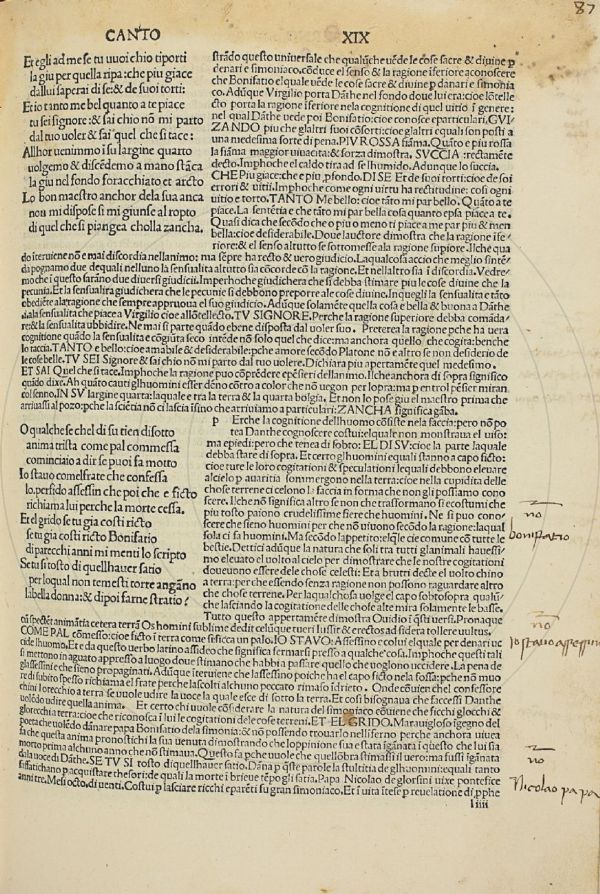 87
CANTO XIX
Et egli ad me se tu vuoi chio ti porti
la giu per quella ripa: che piu giace
dallui saperai di se: & de suoi torti:
Et io tanto me bel quanto a te piace
tu sei signore: & sai chio nō mi parto
dal tuo voler & sai quel che si tace:
Allhor uenimmo i su largine quarto
uolgemo & discēdemo a mano stāca
la giu nel fondo foracchiato et arcto
Lo bon maestro anchor dela sua anca
non mi dispose si mi giunse al ropto
di quel che si piangea cholla zancha.
strādo questo uniuersale che qualūche uēde le cose sacre & diuine p
denari e simoniaco. cōduce el senso & la ragione iferiore a conoscere
che Bonifatio el quale uēde le cose sacre & diuine p danari e simonia
co. Adūque Virgilio porta Dāthe nel fondo doue lui era: cioe lōtelle
cto porta la ragione iferiore nela cognitione di quel uitio i genere:
nel qual Dāthe uede poi Bonifatio: cioe conosce e particulari. GVI
ZANDO piu che glaltri suoi cōsorti: cioe glaltri equali son posti a
una medesima sorte di pena. PIV ROSSA fiāma. Quāto e piu rossa
la fiāma maggior uiuacita; & forza dimostra. SVCCIA: rectamēte
decto. Impho che el caldo tira ad se lhumido. Adunque lo succia.
CHE Piu giace: che e piu pfondo. DI SE Et de suoi torti: cioe de soi
errori & uitii. Impho che come ogni uirtu ha rectitudine: cosi ogni
uitio e torto. TANTO Me bello: cioe tāto mi par bello. Quāto a te
piace. La sentētia e che tāto mi par bella cosa quanto epsa piace a te.
Quasi dica che secōdo che o piu o meno ti piace a me par piu & men
bella: cioe desiderabile. Doue lauctore dimostra che la ragione ife-
riore: & el senso altutto se sottomesse ala ragione supiore. Il che qua
do iteruiene nō e mai discordia nellanimo: ma sēpre ha recto & uero giudicio. La qual cosa accio che meglio sintē-
da pognamo due de quali nelluno la sensualita altutto sia cōcorde cō la ragione. Et nellaltro sia i discordia. Vedre-
mo che i questo sarāno due diuersi giudicii. Impho che giudichera che si debba stimare piu le cose diuine che la
pecunia. Et la sensualita giudichera che le pecunie si debbono preporre ale cose diuine. In quegli la sensualita e tāto
obediēte ala ragione che sempre appruoua el suo giudicio. Adūque solamēte quella cosa e bella & buona a Dāthe
.i. ala sensualita che piace a Virgilio cioe allōtellecto. TV SIGNORE. Perche la ragione superiore debba comāda-
re: & la sensualita ubbidire. Ne mai si parte quādo e bene disposta dal uoler suo. Pretera la ragione p che ha uera
cognitione quādo la sensualita e cōgiuta seco intēde nō solo quel che dice: ma anchora quello che cogita: benche
lo taccia. TANTO e bello: cioe amabile & desiderabile: p che amore secōdo Platone nō e altro se non desiderio de
le cose belle. TV SEI Signore & sai chio nō mi parto dal tuo uolere. Dichiara piu aptamēte quel medesimo.
ET SAI Quel che si tace. Impho che la ragione puo cōprēdere e pēsieri dellanimo. Il che anchora di sopra significo
quādo dixe. Ah quāto cauti glhuomini esser deno cōtro a color che nō uegon per lopra: ma p entrol pēsier miran
col senno. IN SV largine quarta: la quale e tra la terza & la quarta bolgia. Et non lo pose giu el maestro prima che
arriuassi al pozo: p che la sciētia nō ci lascia isino che arriuiamo a particulari: ZANCHA significa gāba.
O qual che se chel di su tien di sotto
anima trista come pal commessa
cominciaio a dir se puoi fa motto
Io stauo comelfrate che confessa
lo perfido assessin che poi che e ficto
richiama lui perche la morte cessa.
Et el grido se tu gia costi ricto
se tu gia costi ricto Bonifatio
di parecchi anni mi menti lo scripto
Se tu si tosto di quellhauer satio
per lo qual non temesti torre angāno
la bella donna: & dipoi farne stratio?
P Erche la cognitione dellhuomo cōsiste nela faccia: pero nō po
tea Danthe cognoscere costui: el quale non monstraua el uiso:
ma e piedi: pero che tenea di sotto: EL DI SV: cioe la parte la quale
debba stare di sopra. Et certo glhuomini equali stanno a capo ficto:
cioe ture le loro cogitationi & speculationi le quali debbono eleuare
al cielo p auaritia sommergono nella terra: cioe nella cupidita delle
chose terrene ci celono la faccia in forma che non gli possiamo cono
scere. Il che nō significa altro se non che trasformano si e costumi che
piu tosto paiono crudelissime fiere che huomini. Ne si puo cono-
scere che sieno huomini per che nō uiuono secōdo la ragione: la qual
sola ci fa huomini. Ma secōdo lappetito: el qle cie comune cō tutte le
bestie. Detti ci adūque la natura che soli tra tutti glanimali hauessi-
mo eleuato el uolto al cielo per dimostrare che le nostre cogitationi
doueuono essere dele chose celesti: Et a brutti decte el uolto chino
a terra: per che essendo senza ragione non possono raguardare altro
che chose terrene. Per la qual chosa uolge el capo sobtosopra qualū-
che lasciando la cogitatione delle chose alte mira solamente le basse.
Tutto questo appertamēte dimostra Ouidio i questi uersi. Prona que
cū spectēt animātia cetera terrā Os homini sublime dedit celūque tueri Iussit & erectos ad sidera tollere uultus.
COME PAL cōmesso: cioe ficto i terra come si ficca un palo. IO STAVO: Assessino e colui el quale per denari uc
cide lhuomo. Et e da questo uerbo latino assideo che significa fermarsi presso a qualche cosa. Impho che questi tali
si mettono in aguato appresso a luogo doue stimano che habbia a passare quello che uogliono uccidere. La pena de
glassessini e che sieno propaginati. Adūque iteruiene che lassessino poi che ha el capo ficto nela fossa: p che nō muo
re di subito spesso richiama el frate per che lascolti alchuno peccato rimaso idrieto. Onde cōuien chel confessore
chini lorecchio a terra se uuole udire la uoce la quale esce di sotto la terra. Et cosi bisognaua che facessi Danthe
uolēdo udire quella anima. Et certo chi uuole cōsiderare la natura del simoniaco cōuiene che ficchi glocchi &
glorecchi a terra: cioe che riconosca i lui le cogitationi dele cose terreni. ET EL GRIDO. Marauiglioso īgegno del
poeta che uolēdo dānare papa Bonifatio dela simonia: & nō possendo trouarlo nellinferno perche anchora uiuea
fa che questa anima pronostichi la sua uenuta dimostrando che loppinione sua e stata igānata i questo che lui sia
morto prima alchuno anno che nō stimaua. Questo fa p che uuole che quellōbra stimassi il uero: ma sussi igānata
dala uoce di Dāthe. SE TV SI TOSTO di quellhauer satio. Dāna p qste parole la stultitia de glhuomini: equali tanto
saffatichano p acquistare thesori: de quali la morte i brieue tēpo gli satia. Papa Nicolao de glorsini uixe pontefice
anni tre. Mesi octo. di uenti. Costui p lasciare ricchi e parēti su gran simoniaco. Et i uita itese p reuelatione di pphe
liiii
nō
bonifatio
nō
Io stauo assessino
nō
Nicolao papa